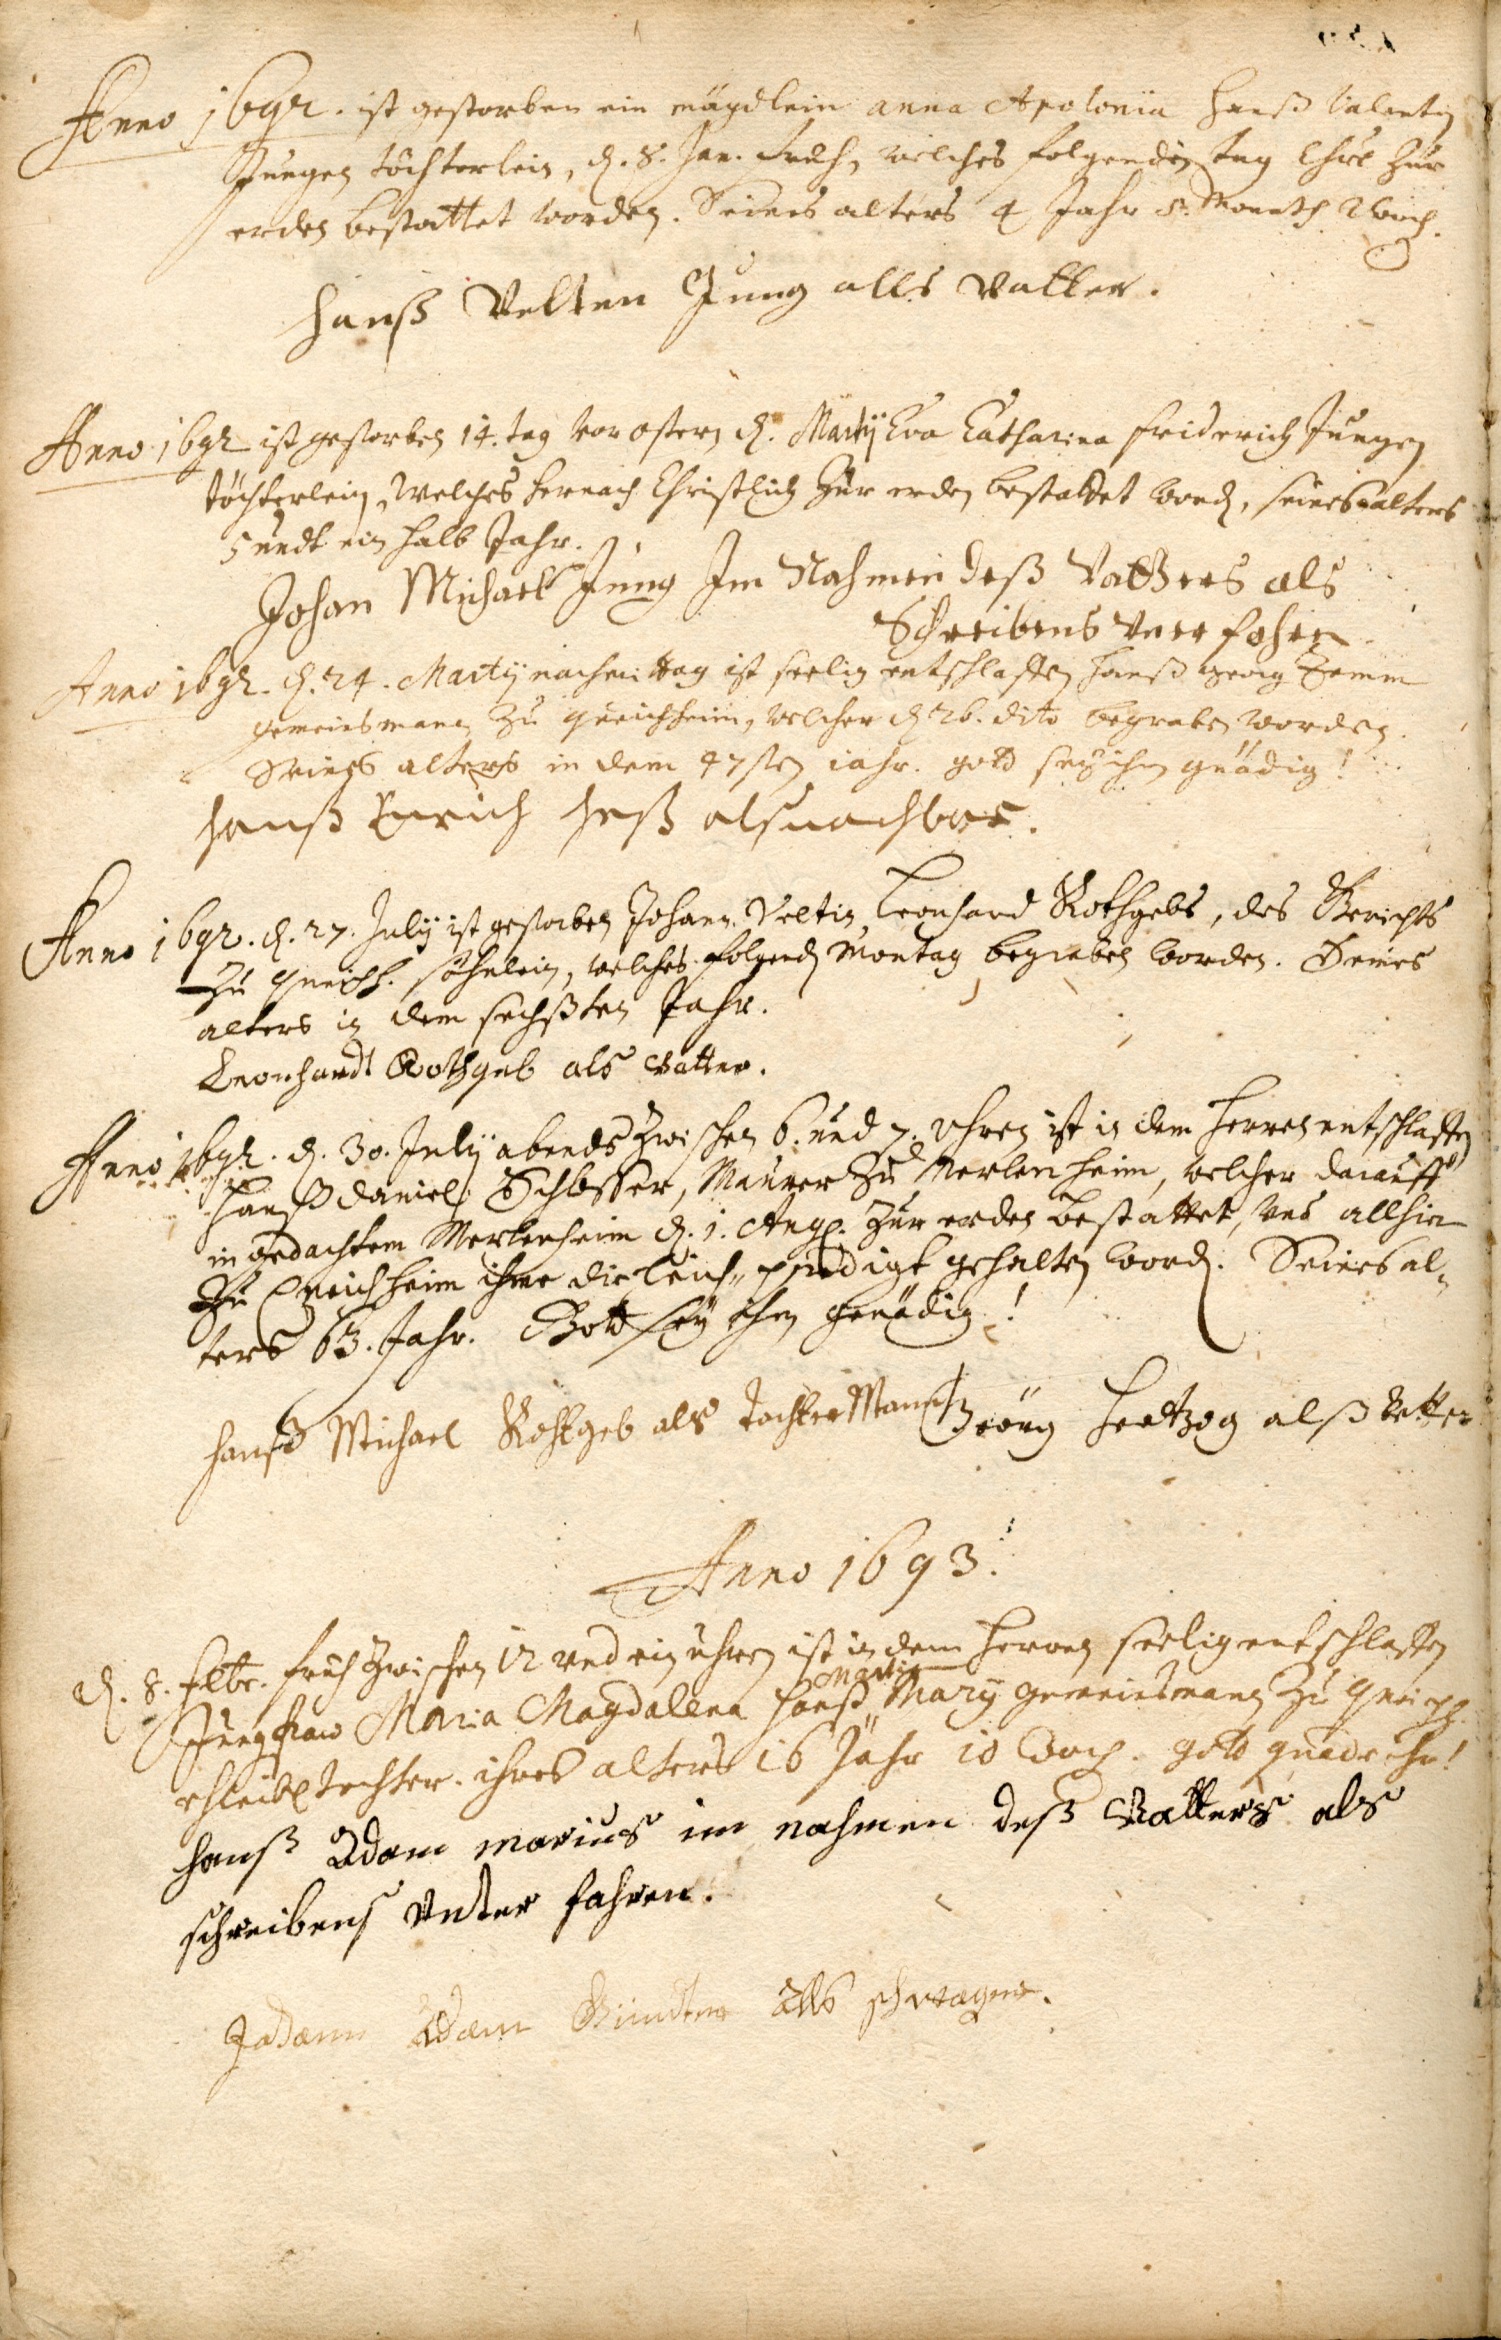 Anno 1692. ist gestorben ein mägdlein anna Apolonia Hanß Valentin
Jungen töchterlein, d. 8. Jan. früh, welches folgenden tag Christl. Zur
erden bestattet worden. Seines alters 4 Jahr 5. Monath 2 Woch.
Hanß Velten Jung alls Vatter.
Anno 1692 ist gestorben 14. tag vor ostern d. Martij Eva Catharina Friderich Jungen
töchterlein, Welches hernach Christlich Zur erden bestattet word, seines alters
5 undt ein halb Jahr.
Johan Michael Jung Im Nahmen deß Vatters als
Schreibens Unerfahren
Anno 1692. d. 24. Martij nachmittag ist seelig entschlaffen Hanß Georg
gemeinsmann Zu Queichheim, welcher d 26. dito begraben worden.
Seines alters in dem 47sten iahr. gott sey ihm gnädig!
Hanß Henrich Heß als nachbar.
Anno 1692. d. 27. Julij ist gestorben Johann Veltin Leonhard Rothgebs, des Gerichts
Zu Queichh. söhnlein, welches folgend Montag begraben worden. Seines
alters in dem sechßten Jahr.
Leonhardt Rothgeb als Vatter.
Anno 1692. d. 30. Julij abends Zwischen 6. und 7. Uhren ist in dem Herren entschlaffen
Hanß Daniel Schlosser, Maurer Zu Merlenheim, welcher darauff
in gedachtem Merlenheim d. 1. Aug. Zur erden bestattet, Uns allhier
Zu Queichheim ihme die leich-predigt gehalten word. Seines al-
ters 63. Jahr. Gott sey ihm gnädig!
Hanß Michael Rohtgeb als tochter Mann Geörg Hertzog alß vetter
Anno 1693.
d. 8. Febr. früh Zwischen 12 und ein uhren ist in dem Herren seelig entschlaffen
Jungfraw Maria Magdalena Hanß Martin Marij gemeinsmann Zu Queichh.
ehleibl. tochter. ihres alters 16 Jahr 10 Woch. gott gnade ihr!
Hanß Adam marius im nahmen deß Vatters als
schreibens Unter fahren.
Adam als schwager.